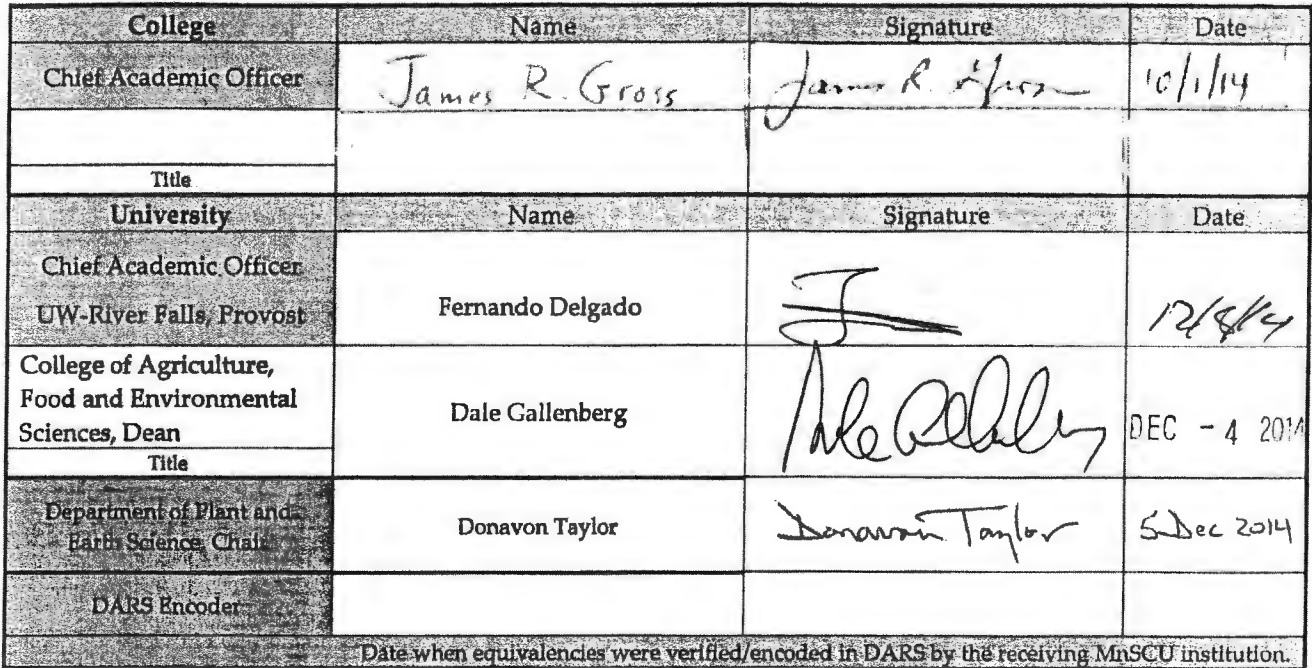 College Name Signature Date
Chief Academic Officer James R. Gross James R. Gross 10/1/14
Title
University Name Signature Date
Chief Academic Officer
UW-River Falls, Provost Fernando Delgado 12/8/14
College of Agriculture,
Food and Environmental
Sciences, Dean Dale Gallenberg DEC - 4 2014
Title
Department of Plant and
Earth Science, Chair Donavon Taylor Donavon Taylor 5 Dec 2014
DARS Encoder
Date when equivalencies were verified/encoded in DARS by the receiving MnSCU institution.